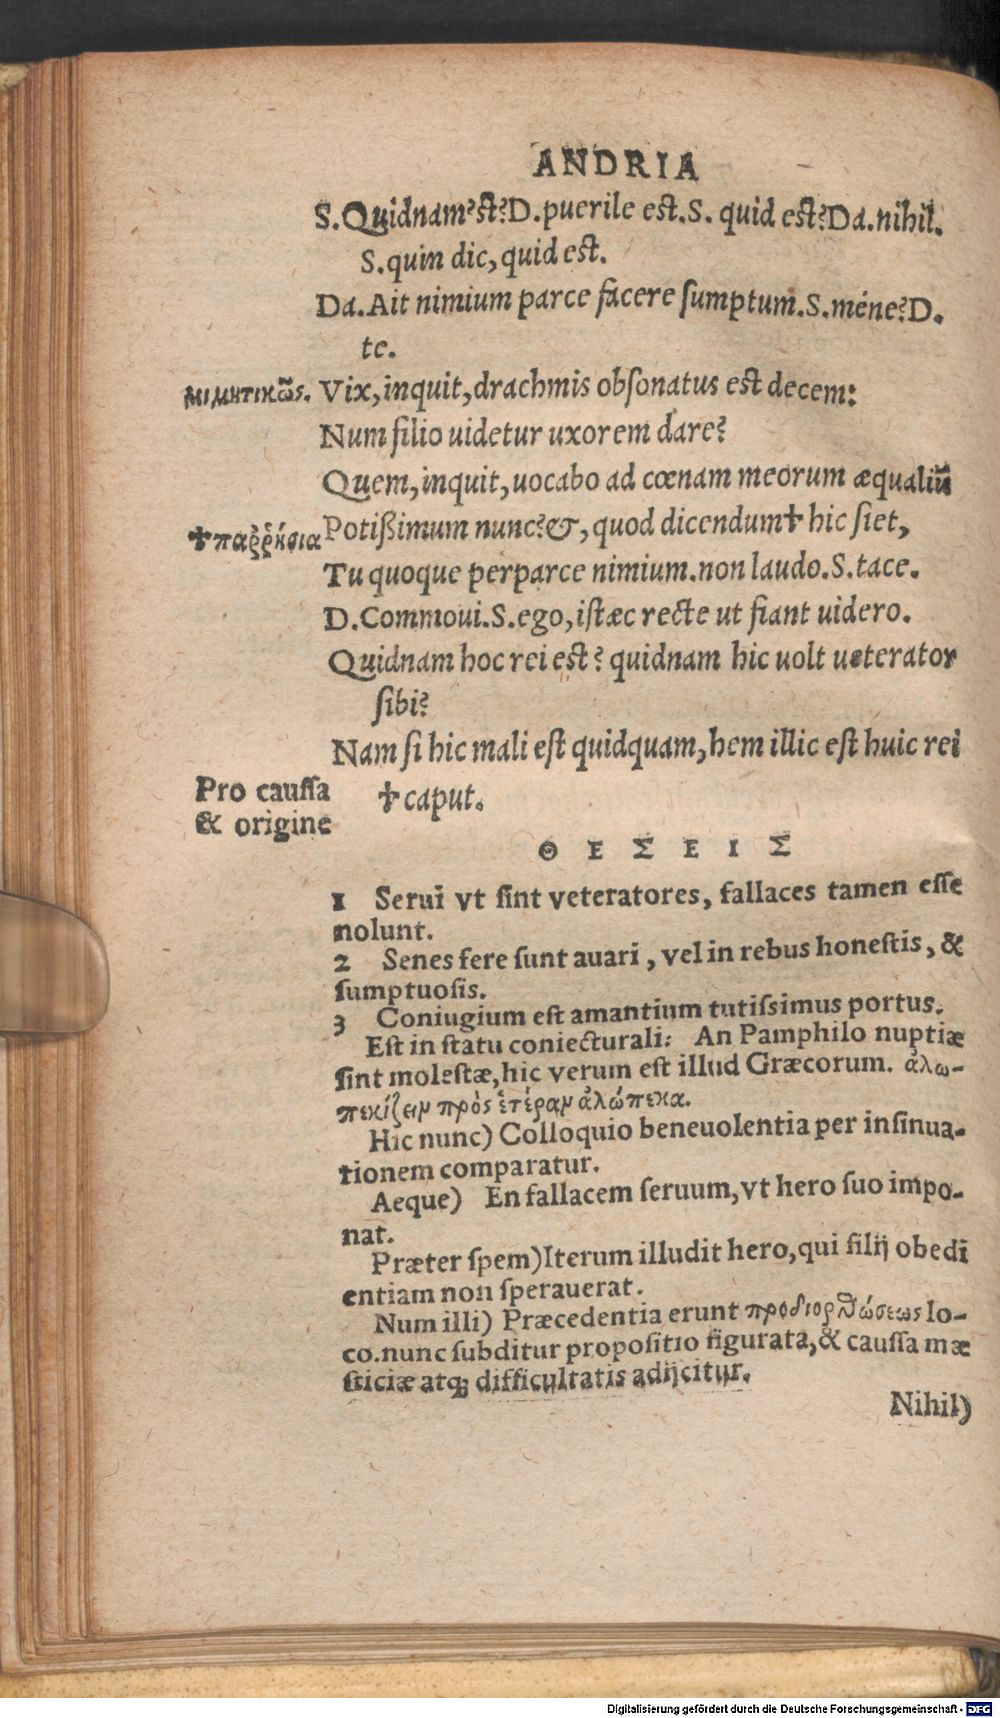 ANDRIA
S. Quidnam'st? D. puerile est. S. quid est? Da. nihil.
S. quin dic, quid est.
Da. Ait nimium parce facere ſumptum. S. méne? D.
te.
μιμητικῶς.
Vix, inquit, drachmis obſonatus est decem:
Num filio uidetur uxorem dare?
Quem, inquit, uocabo ad cœnam meorum æqualiũ
✝παῤῥησια
Potißimum nunc? &, quod dicendum✝ hic ſiet,
Tu quoque perparce nimium. non laudo. S. tace.
D. Commoui. S. ego, iſtæc recte ut fiant uidero.
Quidnam hoc rei est? quidnam hic uolt ueterator
ſibi?
Nam ſi hic mali eſt quidquam, hem illic eſt huic rei
Pro cauſſa
& origine
✝caput.
ΘΕΣΕΙΣ
1 Serui vt ſint veteratores, fallaces tamen eſſe
nolunt.
2 Senes fere ſunt auari, vel in rebus honeſtis, &
ſumptuoſis.
3 Coniugium eſt amantium tutiſsimus portus.
Eſt in ſtatu coniecturali: An Pamphilo nuptiæ
ſint moleſtæ, hic verum eſt illud Græcorum. ἀλω-
πεκίζειν πρὸς ἑτέραν ἀλώπεκα.
Hic nunc) Colloquio beneuolentia per inſinua-
tionem comparatur.
Aeque) En fallacem ſeruum, vt hero ſuo impo-
nat.
Præter ſpem) Iterum illudit hero, qui filij obedi
entiam non ſperauerat.
Num illi) Præcedentia erunt προδιορθώσεως lo-
co. nunc ſubditur propoſitio figurata, & cauſſa mæ
ſticiæ atq; difficultatis adijcitur.
Nihil)
Digitalisierung gefördert durch die Deutsche Forschungsgemeinschaft - DFG